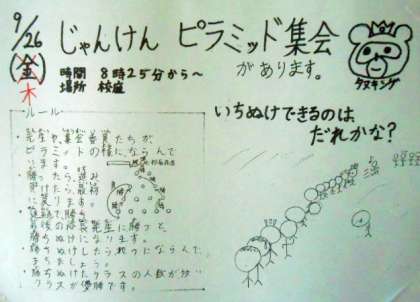 9/26
(金)
木
じゃんけん ピラミッド集会
があります。
時間 8時25分から〜
場所 校庭
タヌキング
いちぬけできるのは、
だれかな?
ルール
・先生や、集会委員たちが、
ピラミットの様にならんで
います。
・勝ったら進み、
負けたら最初
に戻ります。
勝ちぬけになります。
・勝ちぬけしたら列にならんで、
まちましょう。
・勝ちぬけたクラスの人数が多い
クラスが優勝です。